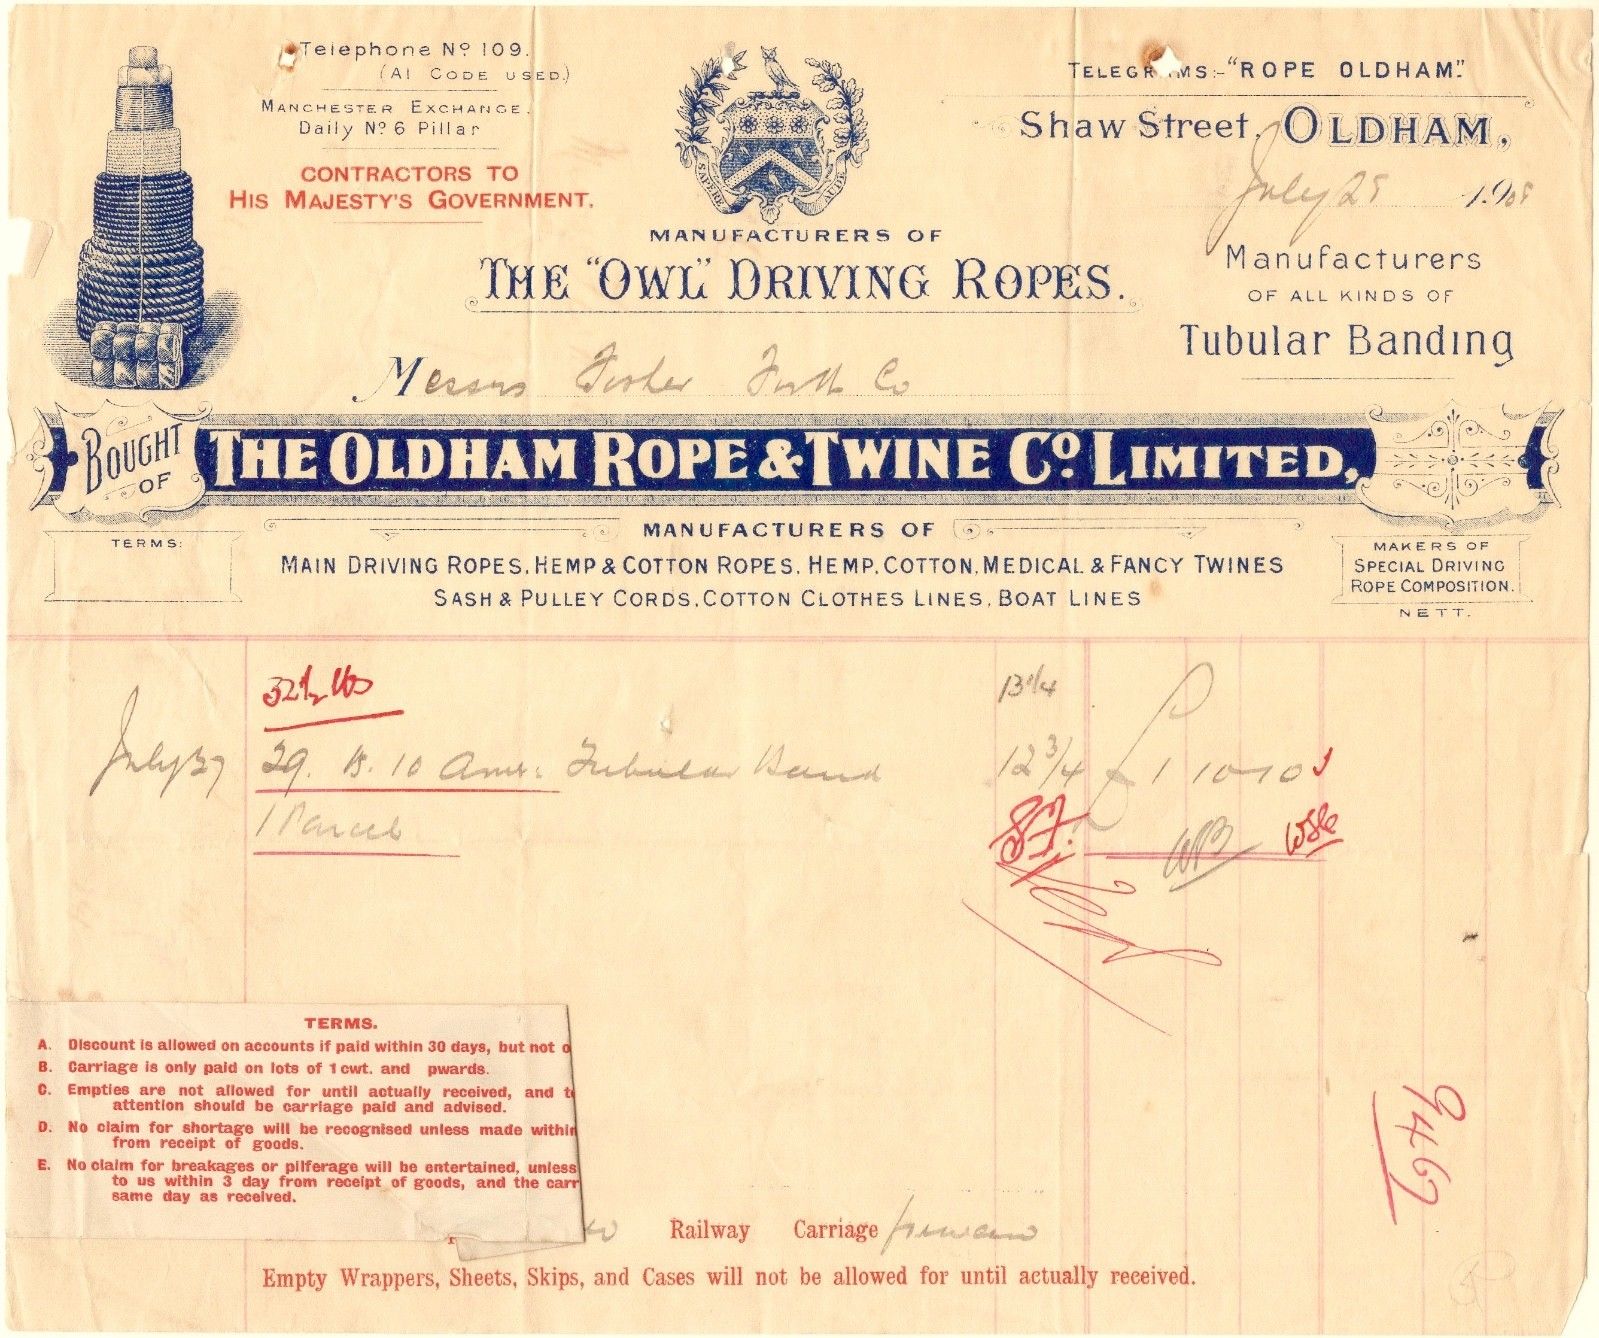 Telephone No 109.
(A1 CODE USED.)
MANCHESTER EXCHANGE.
Daily No 6 Pillar
CONTRACTORS TO
HIS MAJESTY'S GOVERNMENT.
SAPERE AUDE
TELEGRAMS:-"ROPE OLDHAM."
Shaw Street, OLDHAM,
July 28 1908
MANUFACTURERS OF
THE "OWL" DRIVING ROPES.
Manufacturers
OF ALL KINDS OF
Tubular Banding
Messrs Firth Co
BOUGHT OF
THE OLDHAM ROPE & TWINE Co. LIMITED,
TERMS:
MANUFACTURERS OF
MAIN DRIVING ROPES, HEMP & COTTON ROPES, HEMP, COTTON, MEDICAL & FANCY TWINES
SASH & PULLEY CORDS, COTTON CLOTHES LINES, BOAT LINES
MAKERS OF
SPECIAL DRIVING
ROPE COMPOSITION.
NETT.
32½ lbs
13¼
July 27 29. 15. 10 Tubular Band 12¾ £ 1 10 10
1 Parcel
WB
TERMS.
A. Discount is allowed on accounts if paid within 30 days, but not o
B. Carriage is only paid on lots of 1 cwt. and pwards.
C. Empties are not allowed for until actually received, and t
attention should be carriage paid and advised.
D. No claim for shortage will be recognised unless made within
from receipt of goods.
E. No claim for breakages or pilferage will be entertained, unless
to us within 3 day from receipt of goods, and the carr
same day as received.
9467
Railway Carriage forward
Empty Wrappers, Sheets, Skips, and Cases will not be allowed for until actually received.